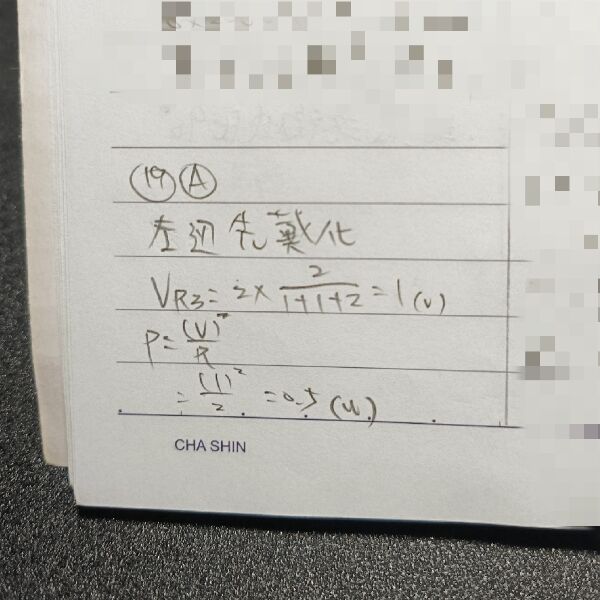 ⑲ Ⓐ
左边先戴化
VR3 = 2 × 2/(1+1+2) = 1 (V)
P = (V)²/R
= (1)²/2 = 0.5 (W)
CHA SHIN